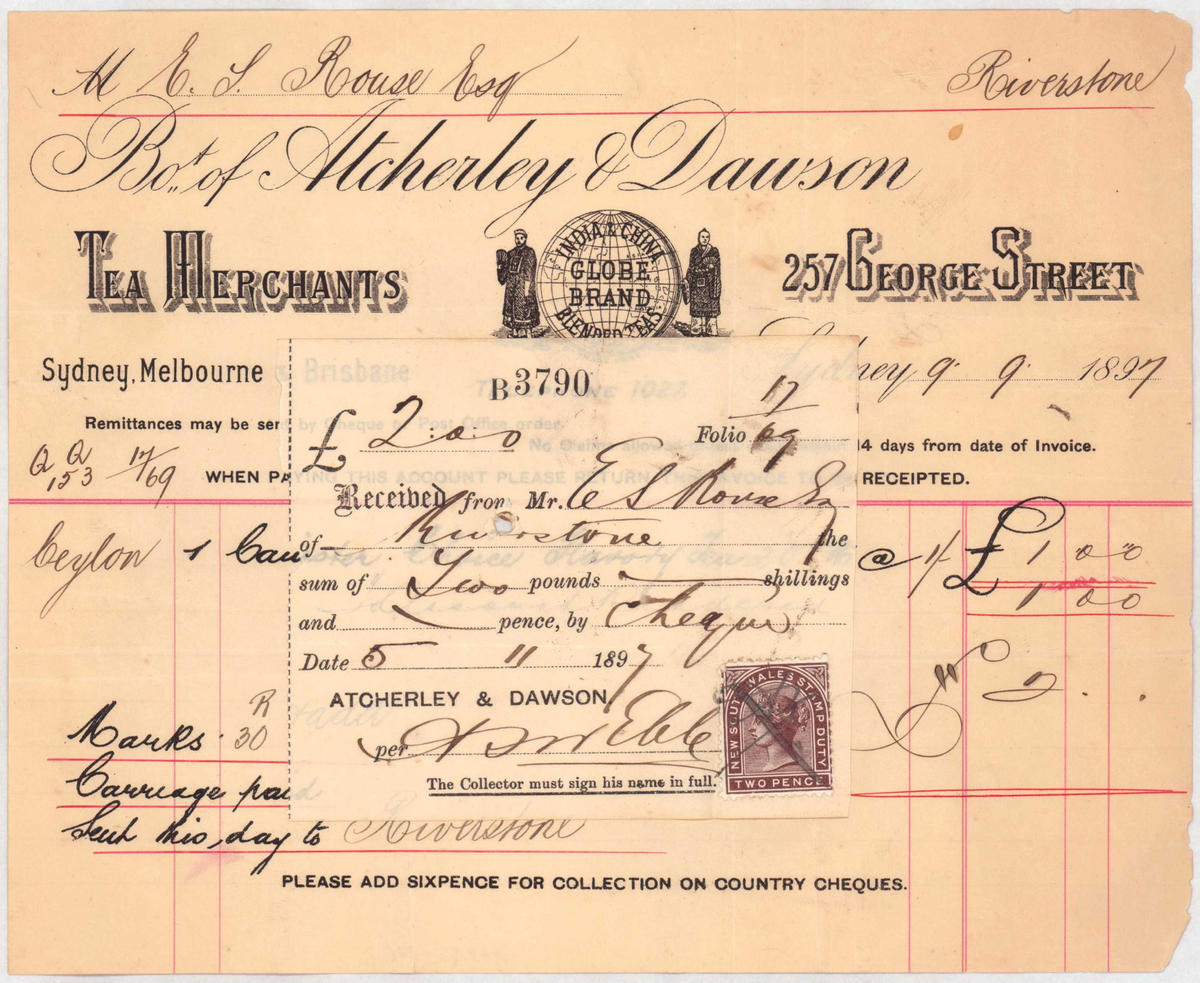 M E. S. Rouse Esq Riverstone
Bot. of Atcherley & Dawson
TEA MERCHANTS
INDIA & CHINA
GLOBE
BRAND
BLENDED TEAS
257 GEORGE STREET
Sydney, Melbourne & Brisbane
Sydney 9. 9. 1897
TELEPHONE
Remittances may be sent by Cheque or Post Office order.
No Claims allowed 14 days from date of Invoice.
Q Q 153 17/69
WHEN PAYING THIS ACCOUNT PLEASE RETURN THE INVOICE TO BE RECEIPTED.
Ceylon 1 @ 1/ £ 1 00
1 00
£ 2 . .
Marks R 30
Carriage paid
Sent this day to Riverstone
PLEASE ADD SIXPENCE FOR COLLECTION ON COUNTRY CHEQUES.
B3790
£ 2:0:0 Folio 17/69
Received from Mr. E S Rouse Esq
of Riverstone the
sum of Two pounds shillings
and pence, by Cheque
Date 5 11 1897
ATCHERLEY & DAWSON
per
The Collector must sign his name in full.
NEW SOUTH WALES STAMP DUTY
TWO PENCE